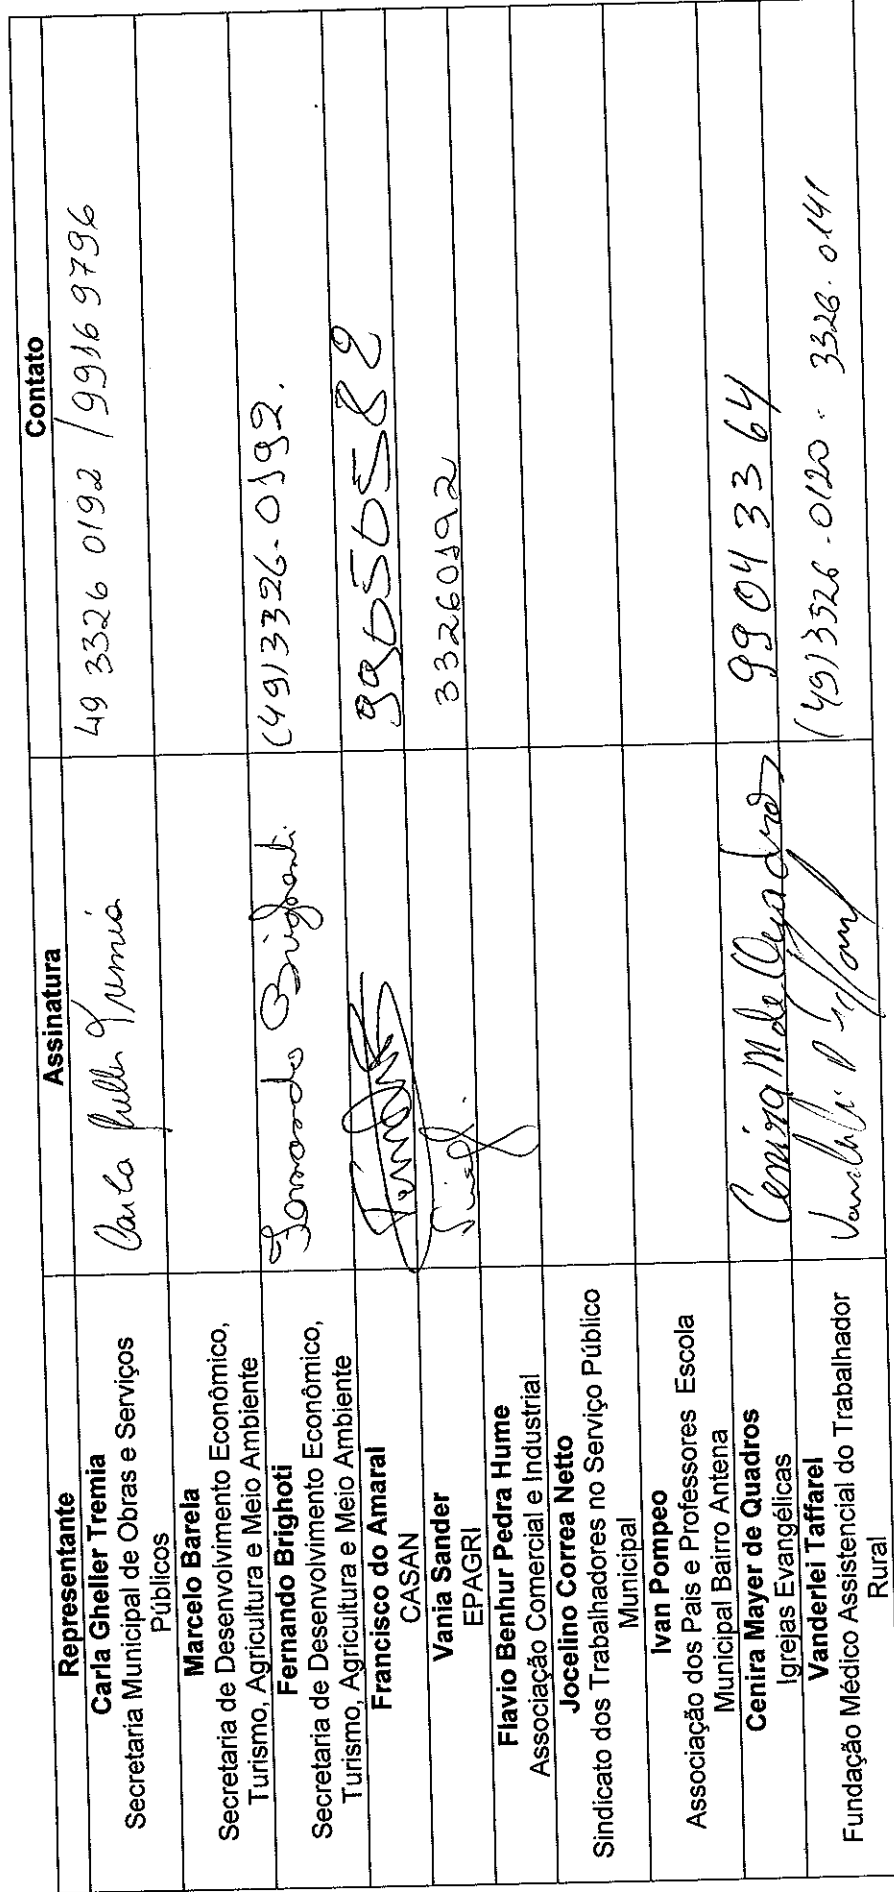 Representante Assinatura Contato
Carla Gheller Tremia
Secretaria Municipal de Obras e Serviços
Públicos
Carla Tremia
49 3326 0192 / 99169796
Marcelo Barela
Secretaria de Desenvolvimento Econômico,
Turismo, Agricultura e Meio Ambiente
Fernando Brighoti
Secretaria de Desenvolvimento Econômico,
Turismo, Agricultura e Meio Ambiente
Fernando
(49)3326-0192.
Francisco do Amaral
CASAN
Vania Sander
EPAGRI
33260192
Flavio Benhur Pedra Hume
Associação Comercial e Industrial
Jocelino Correa Netto
Sindicato dos Trabalhadores no Serviço Público
Municipal
Ivan Pompeo
Associação dos Pais e Professores Escola
Municipal Bairro Antena
Cenira Mayer de Quadros
Igrejas Evangélicas
Cenira M de Quadros
99043364
Vanderlei Taffarel
Fundação Médico Assistencial do Trabalhador
Rural
(49)3326-0120 - 3326-0141